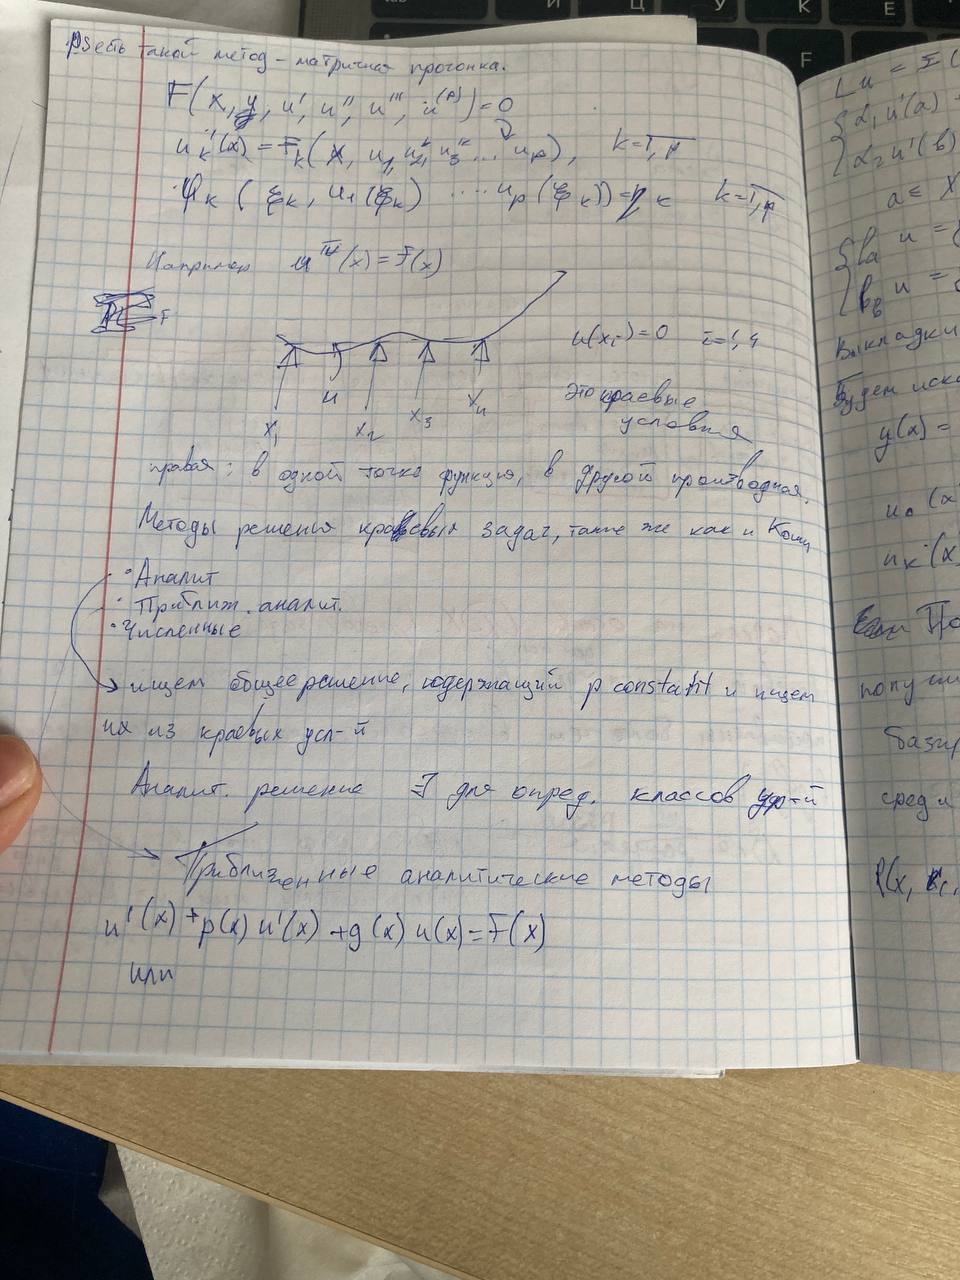 PS есть такой метод - матричная прогонка.
F(x, y, u', u'', u''', u^(p)) = 0
u'k(x) = Fk(x, u1, u2, u3 ... up), k=1,p
φk (ξk, u1(ξk) .... up(ξk)) = ηk k=1,p
Например u^IV(x) = f(x)
u(xi)=0 i=1,4
u
x1 x2 x3 x4
Это краевые
условия
правая: в одной точке функция, в другой производная.
Методы решенья краевых задач, такие же как и Коши
• Аналит
• Приближ. аналит.
• Численные
ищем общее решение, содержащий p constant и ищем
их из краевых усл-й
Аналит. решение ∃ для опред. классов ур-й
Приближенные аналитические методы
u'(x) + p(x) u'(x) + g(x) u(x) = f(x)
или
α1 u'(a)
α2 u'(b)
a≤ x
la u =
lb u =
Выкладки
Будем иска
y(x) =
u0 (x
uk (x
базир
среди